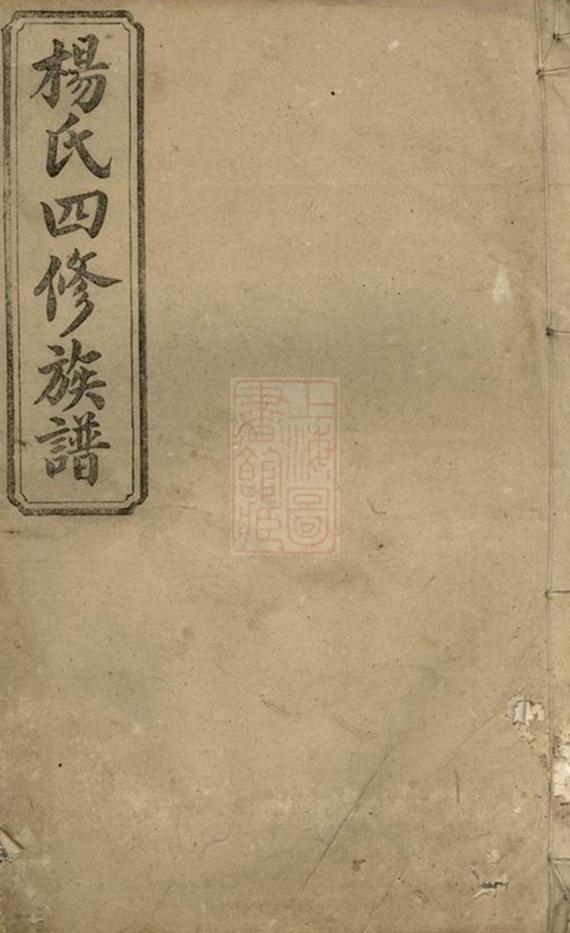 楊氏四修族譜
上海圖
書館藏